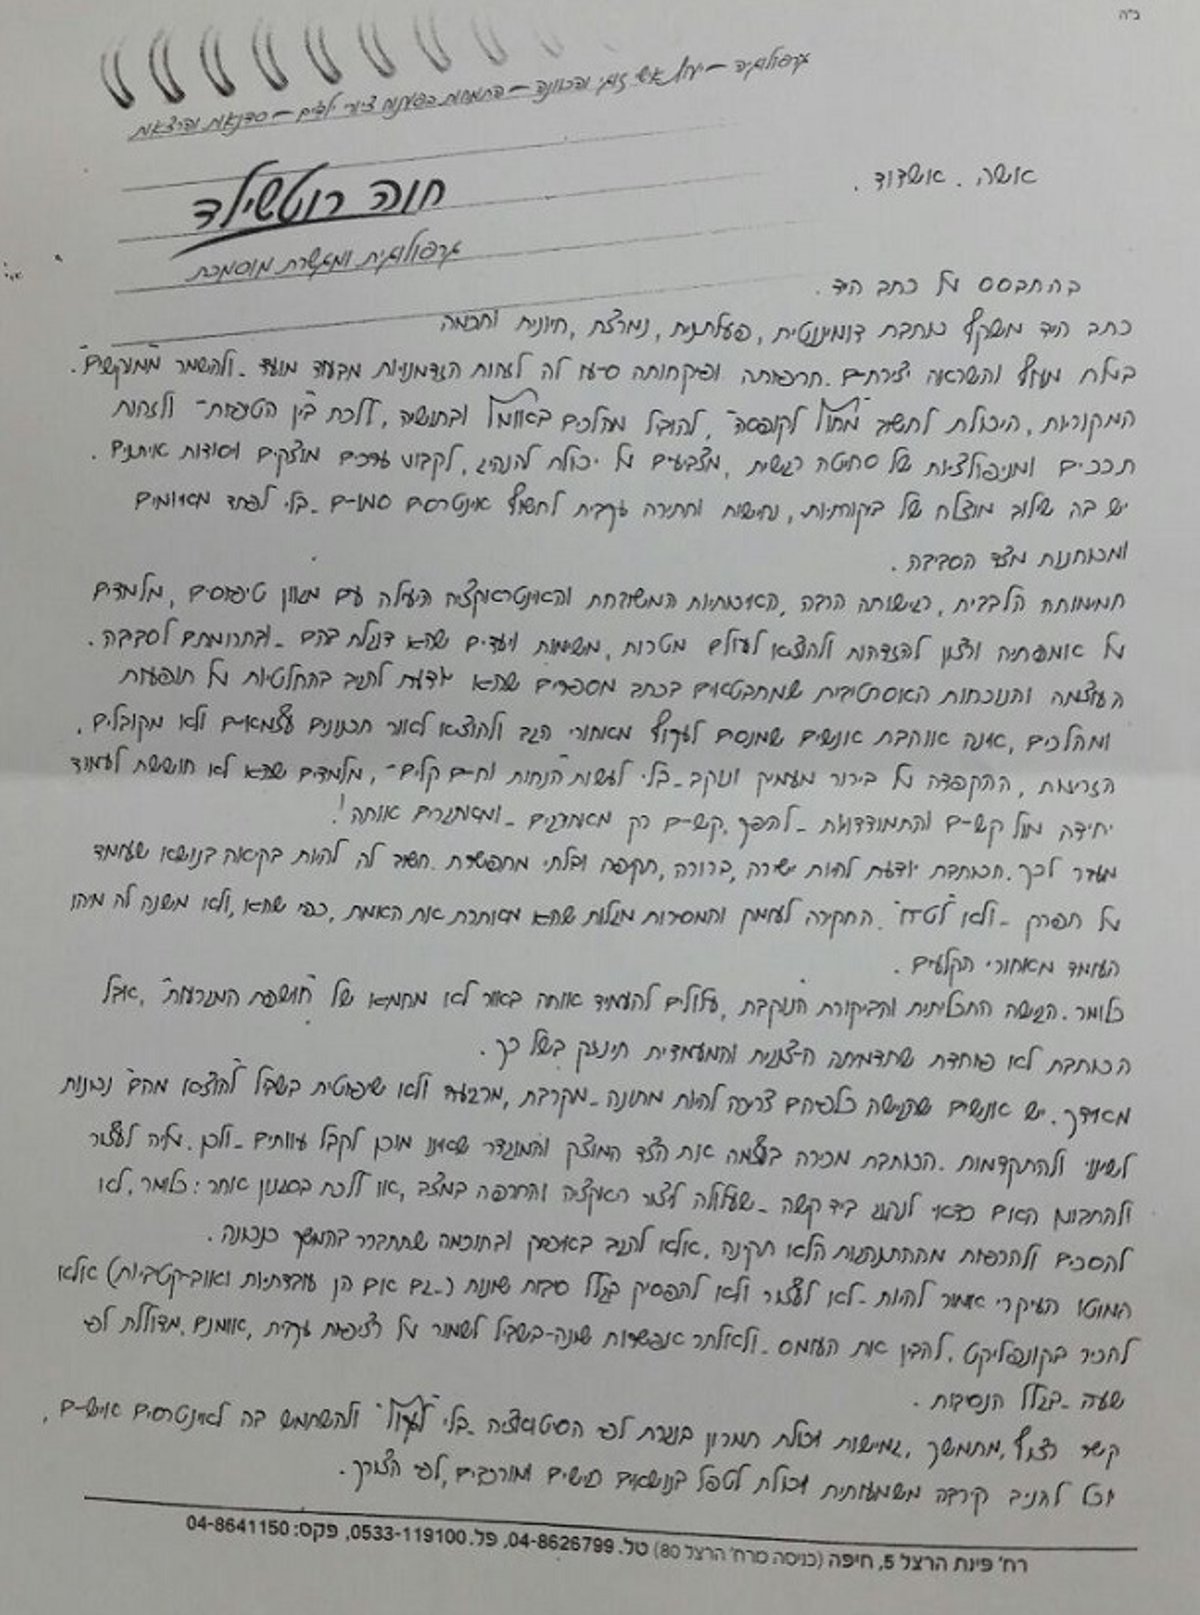 ב״ה
גרפולוגיה – יעוץ אישי זוגי והכוונה – התמחות בפענוח ציורי ילדים – סדנאות והרצאות
חוה רוטשילד
גרפולוגית ומגשרת מוסמכת
אשה. אשדוד.
בהתבסס על כתב היד.
כתב היד משקף כותבת דומיננטית, פעלתנית, נמרצת, חיונית וחכמה
בעלת מעוף והשראה יצירתיים. חריפותה ופיקחותה סייעו לה לזהות הזדמנויות מבעוד מועד - ולהשמר "ממוקשים".
המקוריות, היכולת לחשוב "מחוץ לקופסה", להוביל מהלכים באומץ ובתושיה, ללכת "בין הטיפות" ולזהות
תככים ומניפולציות של סחיטה רגשית, מצביעים על יכולת להנהיג, לקבוע ערכים מוצקים ויסודות איתנים.
יש בה שילוב מוצלח של ביקורתיות, נחישות וחתירה עקבית לחשוף אינטרסים סמויים - בלי לפחד מאיומים
ומכוחנות מצד הסביבה.
חמימותה הלבבית, רגישותה הרבה, האיכותיות המשובחת והאינטראקציה היעילה עם מגוון טיפוסים, מלמדים
על אמפתיה ורצון להזדהות ולהוציא לפועל מטרות, משימות ויעדים שהיא דוגלת בהם - ובתרומתם לסביבה.
העוצמה והנוכחות האסרטיבית שמתבטאים בכתב מספרים שהיא יודעת להגיב בהחלטיות על תופעות
ומהלכים, אינה אוהבת אנשים שמנסים לעקוף מאחורי הגב ולהוציא לאור תכנונים עצמאיים ולא מקובלים.
הזריזות, ההקפדה על בירור מעמיק ונוקב - בלי לעשות "הנחות וחיים קלים", מלמדים שהיא לא חוששת לעמוד
יחידה מול קשיים והתמודדויות - להיפך, קשיים רק מאתגרים - ומאתגרים אותה!
מעבר לכך. הכותבת יודעת להיות ישירה, ברורה, תקיפה ובלתי מתפשרת. חשוב לה להיות בקיאה בנושא שעומד
על הפרק - ולא "לטייח". החקירה לעומק והמסירות מגלות שהיא מאתרת את האמת, כפי שהיא, ולא משנה לה מיהו
העומד מאחורי הקלעים.
כלומר. הגישה התכליתית והביקורת הנוקבת, עלולים להעמיד אותה באור לא מחמיא של "חושפת המגרעות", אבל
הכותבת לא פוחדת שתדמיתה היצוגית והמעמדית תינזק בשל כך.
מאידך. יש אנשים שהגישה כלפיהם צריכה להיות מתונה - מקרבת, מרגיעה ולא שיפוטית בשביל "להוציא מהם" נכונות
לשינוי ולהתקדמות. הכותבת מכירה בעצמה את הצד המוצק והמוגדר שאינו מוכן לקבל עיוותים - ולכן. עליה לעצור
ולהתבונן האם כדאי לנהוג ביד קשה - שעלולה ליצור ריאקציה והחרפה במצב, או ללכת בסגנון אחר: כלומר, לא
להסכים ולהרפות מההתנהגות הלא תקינה, אלא להגיב באיפוק ובחוכמה שתתברר בהמשך כנכונה.
המוטו העיקרי אמור להיות - לא לעצור ולא להפסיק בגלל סיבות שונות (- גם אם הן עובדתיות ואובייקטיביות) אלא
להכיר בקונפליקט, להבין את העומס - ולאלתר אפשרות שונה - בשביל לשמור על רציפות עקבית, אומנם. מדוללת לפי
שעה - בגלל הנסיבות.
קשר רצוף, מתמשך, גמישות ויכולת תמרון בוגרת לפי הסיטואציה - בלי "לעקוץ" ולהשתמש בה לאינטרסים אישיים,
יוכל להניב קירבה משמעותית ויכולת לטפל בנושאים רגישים ומורכבים, לפי הצורך.
רח' פינת הרצל 5, חיפה (כניסה מרח' הרצל 80) טל. 04-8626799, פל. 0533-119100, פקס: 04-8641150